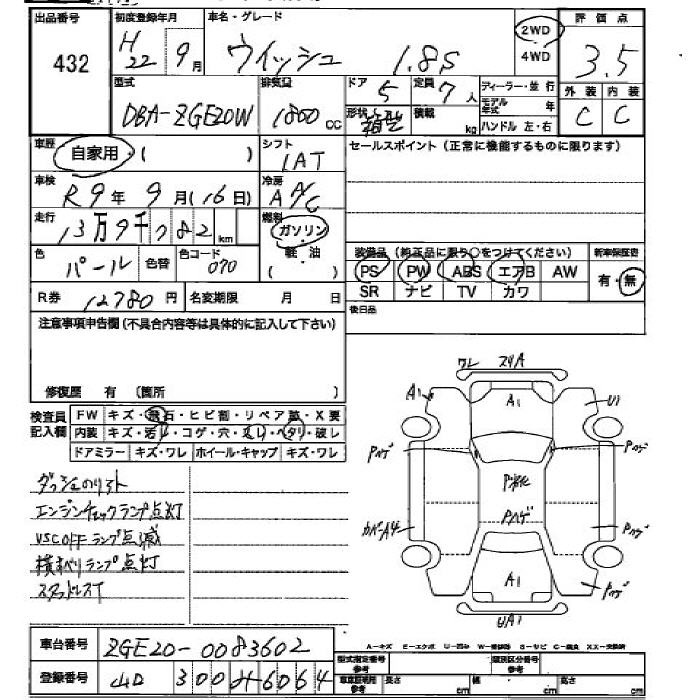 出品番号
432
初度登録年月
H22年9月
車名・グレード
ウイッシュ 1.8S
2WD
4WD
評価点
3.5
外装 内装
C C
型式
DBA-ZGE20W
排気量
1800cc
ドア
5
定員
7人
形状
積載
kg
ディーラー・並行
モデル年式 年
ハンドル 左・右
車歴
自家用・( )
シフト
IAT
セールスポイント(正常に機能するものに限ります)
車検
R9年9月(16日)
冷房
A A/C
走行
13万9千782km
燃料
ガソリン・軽・油
( )
色
パール
色替
色コード
070
装備品(純正品に限り○をつけてください)
新車保証書
PS PW ABS エアB AW
有・無
SR ナビ TV カワ
R券 12780円
名変期限 月 日
後日品
注意事項申告欄(不具合内容等は具体的に記入して下さい)
修復歴 有 (箇所 )
検査員記入欄
FW キズ・飛石・ヒビ割・リペア跡・X要
内装 キズ・汚レ・コゲ・穴・スレ・ヘタリ・破レ
ドアミラー キズ・ワレ ホイール・キャップ キズ・ワレ
ダッシュのリフト
エンジンチェックランプ点灯
VSC OFFランプ点滅
横すべりランプ点灯
スタッドレスT
ワレ スリA
A1
A1
U1
Pハゲ
Pハゲ
Pハゲ
カバーA4
Pハゲ
A1
Pハゲ
UA1
A-キズ E-エクボ U-凹み W-補修跡 S-サビ C-腐食 XX-交換済
車台番号
ZGE20-0083602
登録番号
300 6064
型式指定番号
参考
類別区分番号
参考
車車証明
参考
長さ cm
幅 cm
高さ cm